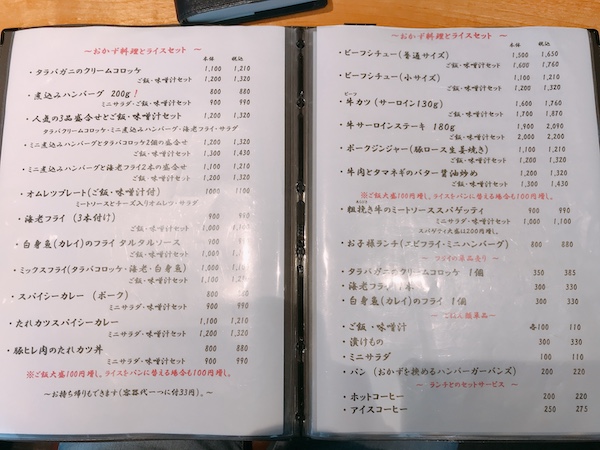 ～ おかず料理とライスセット ～
本体 税込
・タラバガニのクリームコロッケ 1,100 1,210
ご飯・味噌汁セット 1,200 1,320
・煮込みハンバーグ 200g！ 800 880
ミニサラダ・ご飯・味噌汁セット 900 990
・人気の3品盛合せとご飯・味噌汁セット 1,200 1,320
タラバクリームコロッケ・ミニ煮込みハンバーグ・海老フライ・サラダ
・ミニ煮込みハンバーグとタラバコロッケ2個の盛合せ 1,200 1,320
ご飯・味噌汁セット 1,300 1,430
・ミニ煮込みハンバーグと海老フライ2本の盛合せ 1,100 1,210
ご飯・味噌汁セット 1,200 1,320
・オムレツプレート(ご飯・味噌汁付) 1000 1100
ミートソースとチーズ入りオムレツ・サラダ
・海老フライ (3本付け) 900 990
ご飯・味噌汁セット 1,000
・白身魚(カレイ)のフライ タルタルソース 900
ご飯・味噌汁セット 1,000
・ミックスフライ(タラバコロッケ・海老・白身魚) 1,000
ご飯・味噌汁セット 1,100
・スパイシーカレー (ポーク) 800
ミニサラダ・味噌汁セット 900 990
・たれカツスパイシーカレー 1,100 1,210
ミニサラダ・味噌汁セット 1,200 1,320
・豚ヒレ肉のたれカツ丼 800 880
ミニサラダ・味噌汁セット 900 990
※ご飯大盛100円増し。ライスをパンに替える場合も100円増し。
～お持ち帰りもできます(容器代一つに付33円)。～
～ おかず料理とライスセット ～
本体 税込
・ビーフシチュー(普通サイズ) 1,500 1,650
ご飯・味噌汁セット 1,600 1,760
・ビーフシチュー(小サイズ) 1,100 1,210
ご飯・味噌汁セット 1,200 1,320
・牛カツ (サーロイン130g) 1,600 1,760
ご飯・味噌汁セット 1,700 1,870
・牛サーロインステーキ 180g 1,900 2,090
ご飯・味噌汁セット 2,000 2,200
・ポークジンジャー(豚ロース生姜焼き) 1,100 1,210
ご飯・味噌汁セット 1,200 1,320
・牛肉とタマネギのバター醤油炒め 1,200 1,320
ご飯・味噌汁セット 1,300 1,430
※ご飯大盛100円増し。ライスをパンに替える場合も100円増し。
・粗挽き牛のミートソーススパゲッティ 900 990
ミニサラダ・味噌汁セット 1,000 1,100
スパゲティ大盛は200円増し。
・お子様ランチ(エビフライ・ミニハンバーグ) 800 880
～ フライの単品売り ～
・タラバガニのクリームコロッケ 1個 350 385
・海老フライ 1本 300 330
・白身魚(カレイ)のフライ 1個 300 330
～ごはん類単品～
・ご飯・味噌汁 各100 110
・漬けもの 300 330
・ミニサラダ 100 110
・パン (おかずを挟めるハンバーガーバンズ) 200 220
～ランチとのセットサービス～
・ホットコーヒー 200 220
・アイスコーヒー 250 275